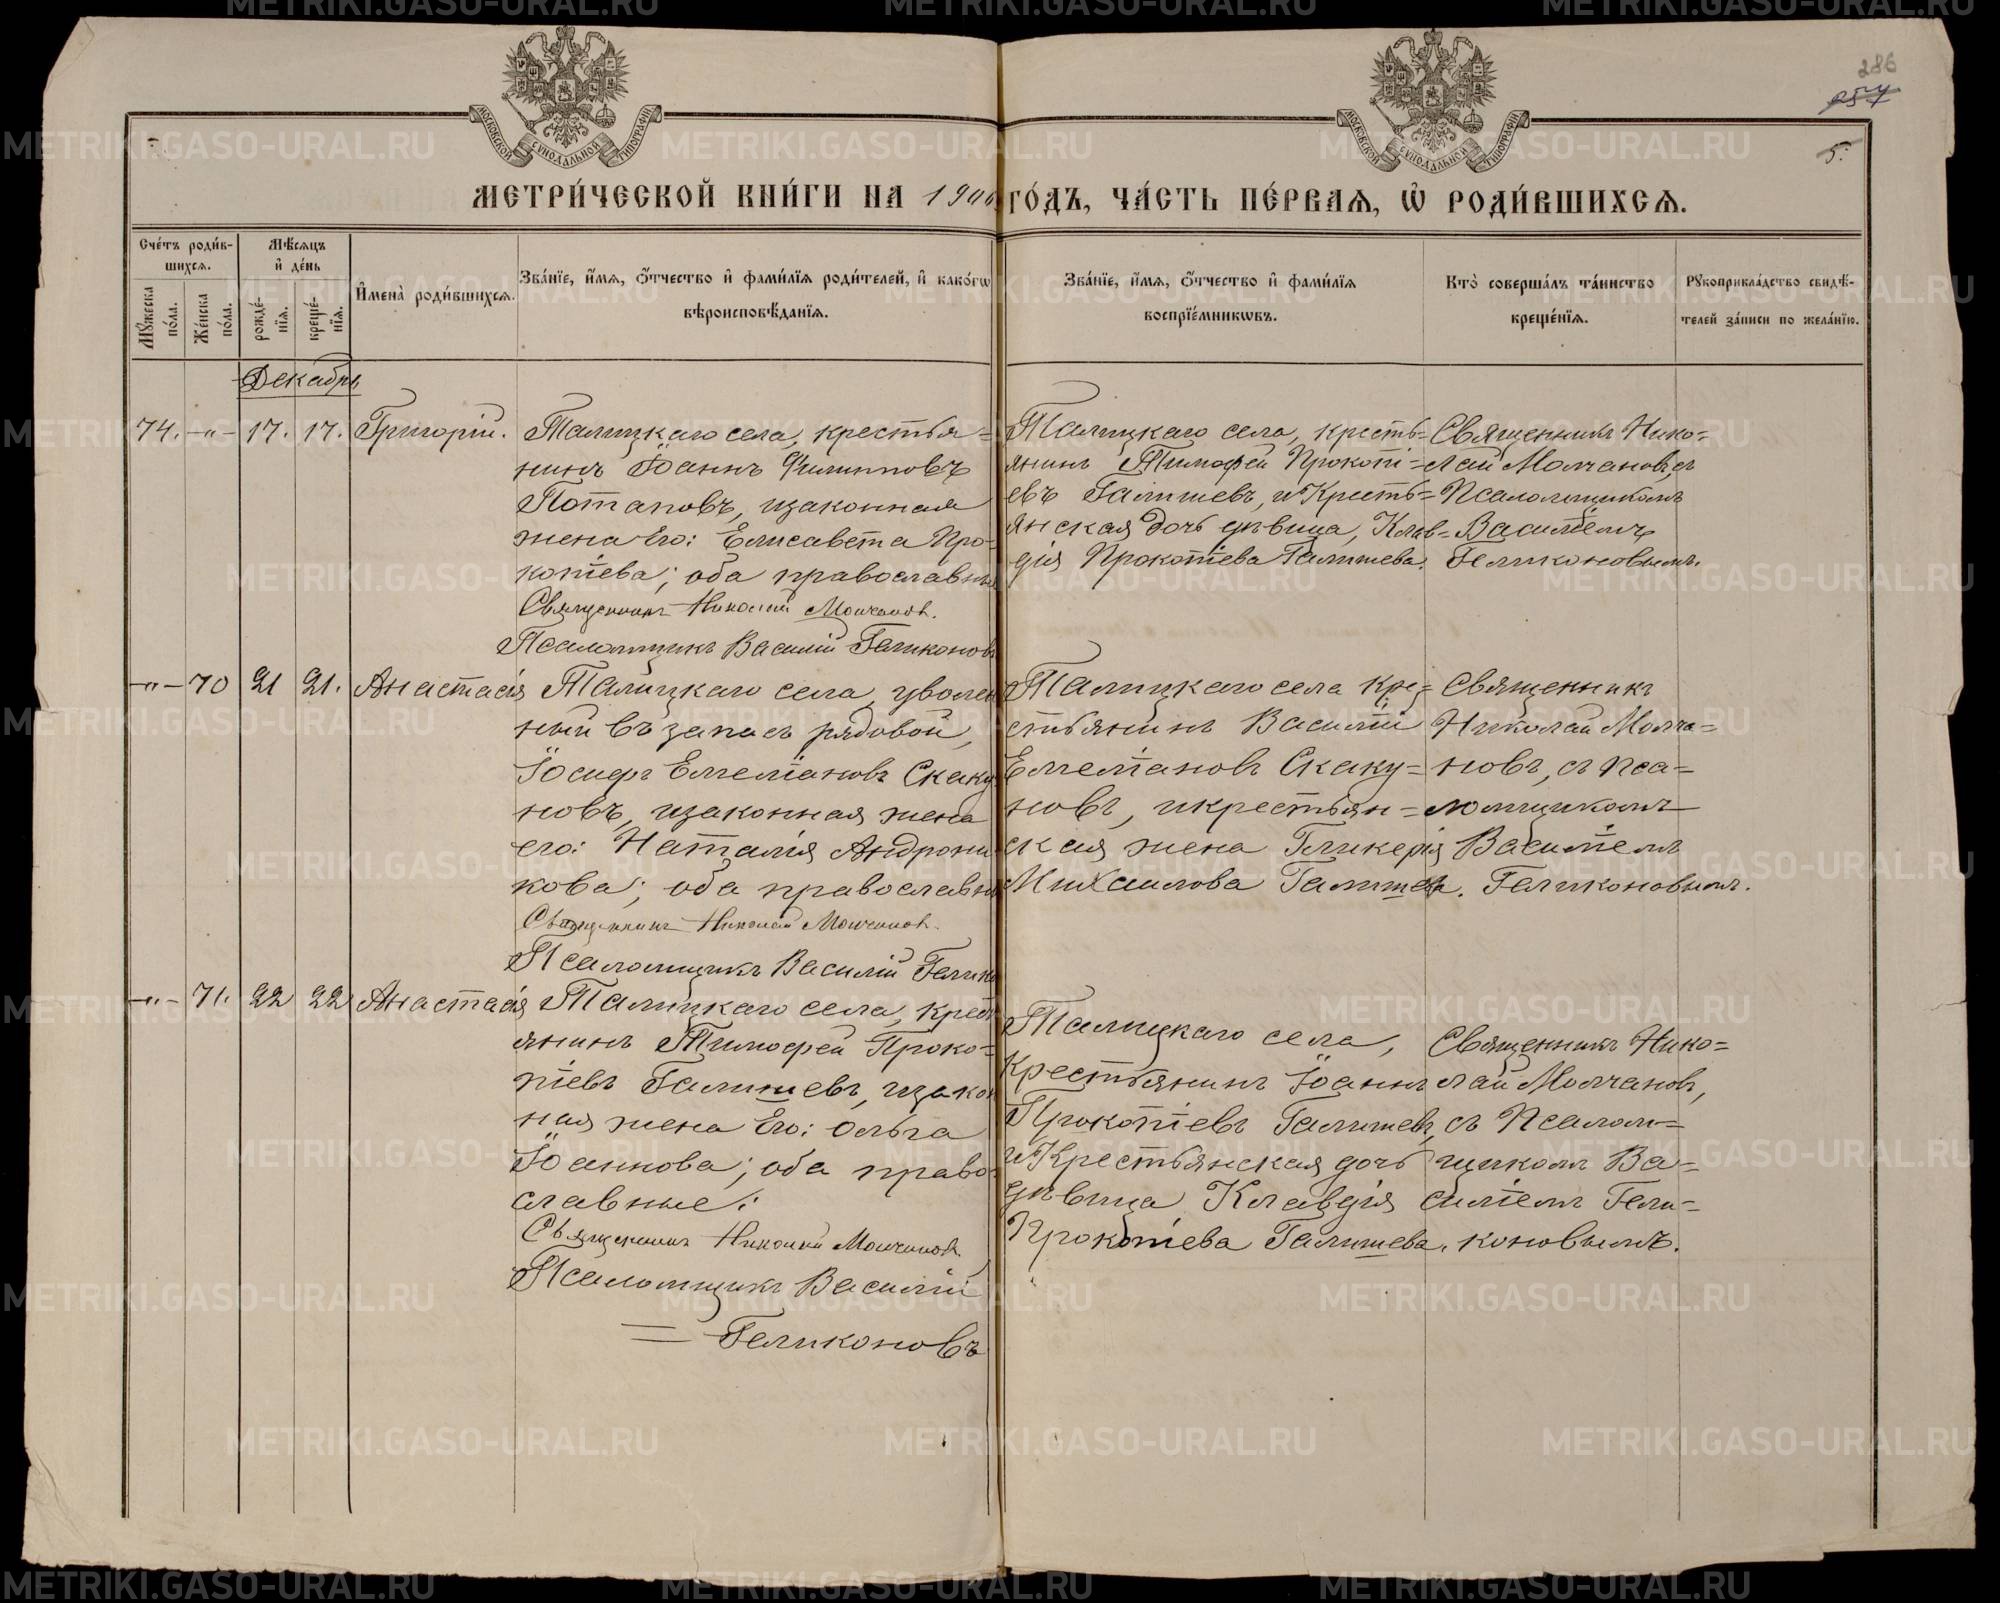 286
257
5.
МОСКОВСКОЙ СУНОДАЛЬНОЙ ТИПОГРАФІИ
МОСКОВСКОЙ СУНОДАЛЬНОЙ ТИПОГРАФІИ
МЕТРИ́ЧЕСКОЙ КНИ́ГИ НА 1906 ГО́ДЪ, ЧА́СТЬ ПЕ́РВАЯ, Ѡ҆ РОДИ́ВШИХСЯ.
Счётъ роди́в-
шихся.
Мꙋ́жеска
по́ла.
Же́нска
по́ла.
Мѣ́сяцъ
и҆ де́нь
рожде́-
нїя.
креще́-
нїя.
И҆мена̀ роди́вшихся.
Зва́нїе, и҆́мя, ѻ҆́тчество и҆ фами́лїя роди́телей, и҆ како́гѡ
вѣроисповѣ́данїя.
Зва́нїе, и҆́мя, ѻ҆́тчество и҆ фами́лїя
воспрїе́мникѡвъ.
Кто̀ соверша́лъ та́инство
креще́нїя.
Рꙋкоприкла́дство свидѣ́-
телей за́писи по жела́нїю.
Декабрь
74. -"- 17. 17. Григорій.
Талицкаго села, крестья=
нинъ Іоаннъ Филипповъ
Потаповъ, изаконная
жена Его: Елисавета Про-
копіева; оба православные
Священникъ Николай Молчановъ.
Псаломщикъ Василій Геликоновъ
Талицкаго села, кресть=
янинъ Тимофей Прокопі=
евъ Галишевъ, и Кресть=
янская дочь дѣвица, Клав=
дія Прокопіева Галишева.
Священникъ Нико=
лай Молчановъ, съ
Псаломщикомъ
Василіемъ
Геликоновымъ.
-"- 70 21 21. Анастасія
Талицкаго села, уволен
ный въ запасъ рядовой,
Іосифъ Емеліановъ Скаку
новъ, изаконная жена
его: Наталія Андрони
кова; оба православны
Священникъ Николай Молчановъ.
Псаломщикъ Василій Гелико
Талицкаго села кре=
стьянинъ Василій
Емеліановъ Скаку=
новъ, икрестьян=
ская жена Гликерія
Михаилова Галишева.
Священникъ
Николай Молча=
новъ, съ Пса=
ломщикомъ
Василіемъ
Геликоновымъ.
-"- 71. 22 22 Анастасія
Талицкаго села, крест
янинъ Тимофей Проко=
піевъ Галишевъ, изакон
ная жена Его: Ольга
Іоаннова; оба право
славные:
Священникъ Николай Молчановъ.
Псаломщикъ Василій
= Геликоновъ
Талицкаго села,
Крестьянинъ Іоаннъ
Прокопіевъ Галишевъ,
и Крестьянская дочь
дѣвица Клавдія
Прокопіева Галишева.
Священникъ Нико=
лай Молчановъ,
съ Псалом=
щикомъ Ва=
силіемъ Гели=
коновымъ.
METRIKI.GASO-URAL.RU